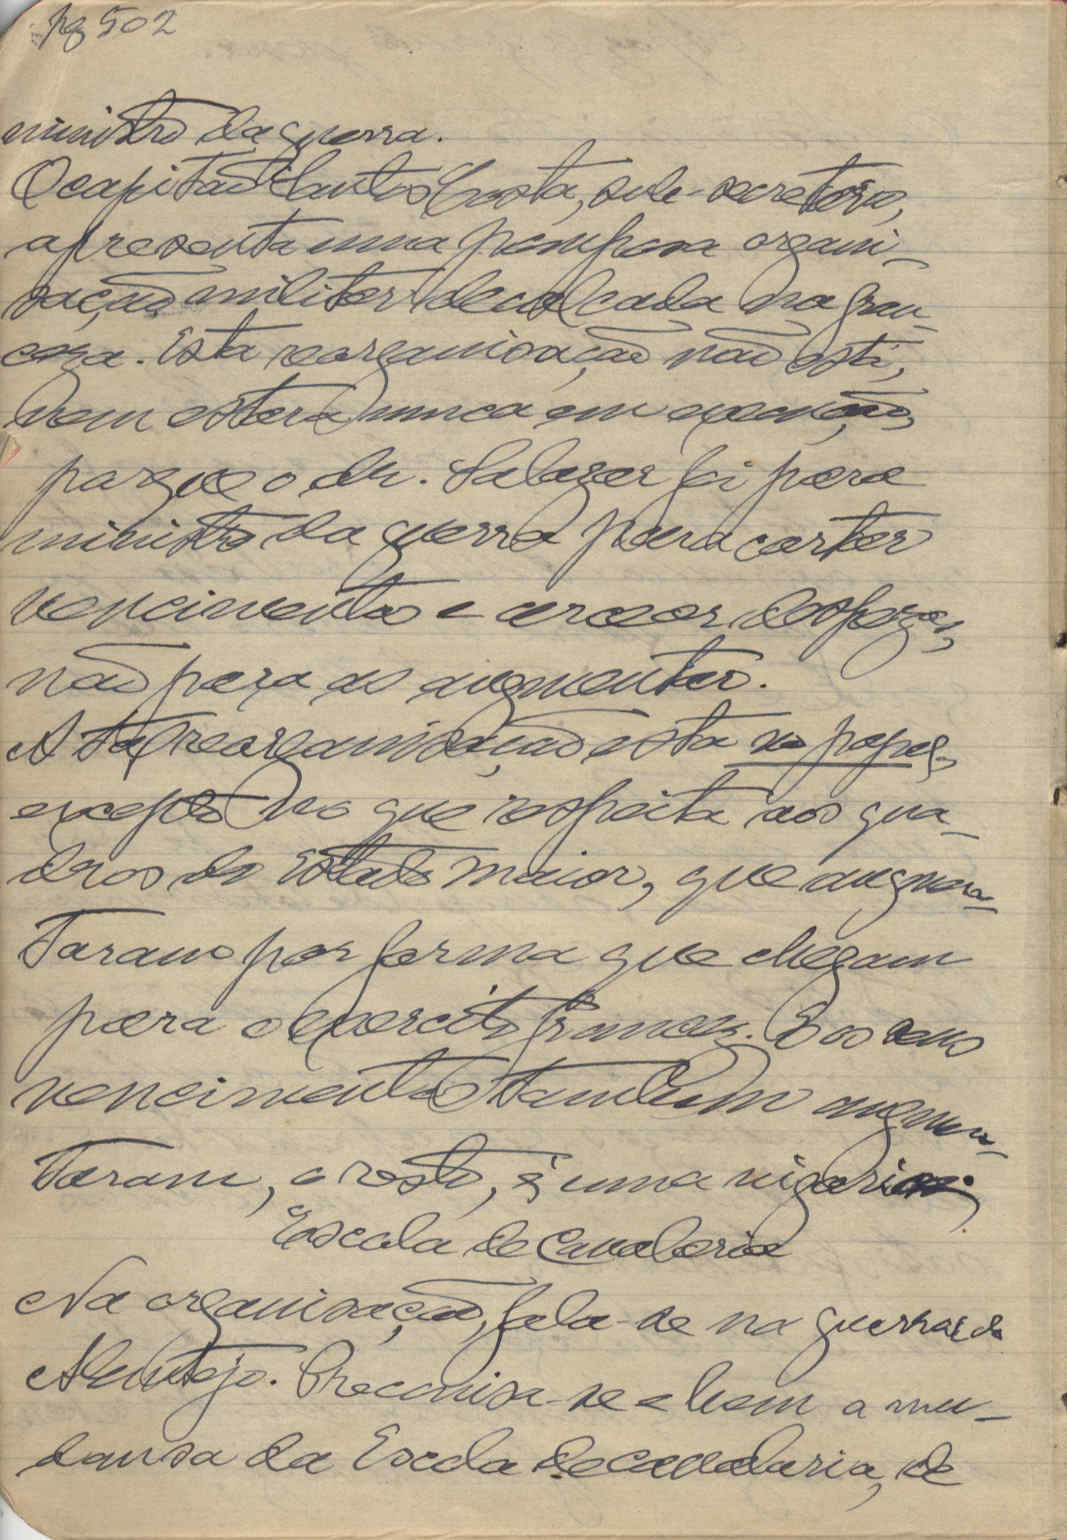 pg 502
ministro da guerra.
O capitão Santos Costa, sub-secretorio,
apresenta uma pomposa organi-
sação militar decalcada na fran-
ceza. Esta reorganisação não está,
nem estará nunca em execução,
porque o dr. Salazar foi para
ministro da guerra para cortar
vencimentos e cercear despezas,
não para as augmentar.
A tal reorganisação esta no papel,
excepto no que respeita aos qua-
dros do Estado Maior, que augmen-
taram por forma que chegam
para o exercito francez. E os seus
vencimentos tambem augmen-
taram, o resto, é uma vigarice.
Escola de Cavalaria
Na organisação, fala-se na guerra do
Alentejo. Preconisa-se e bem a mu-
dansa da Escola de cavalaria, de